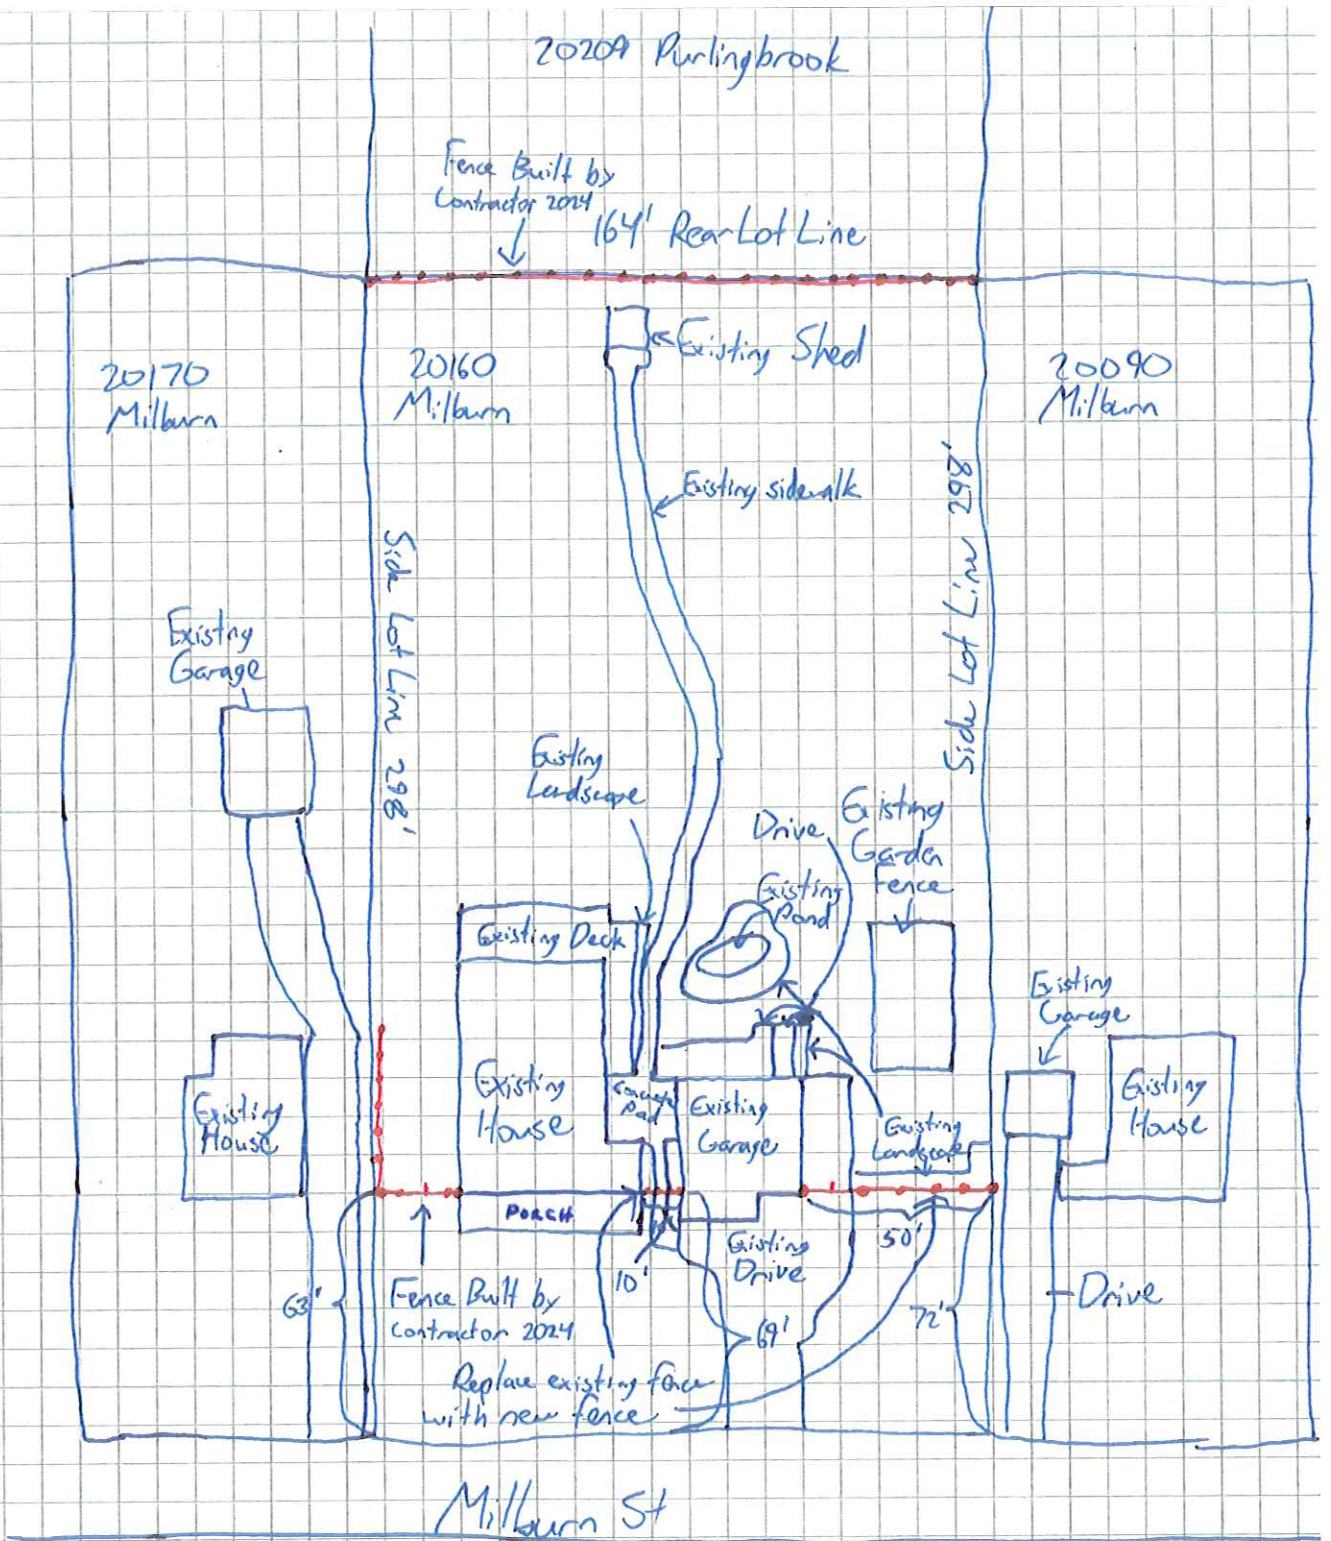 20209 Purlingbrook
Fence Built by
Contractor 2024
164' Rear Lot Line
Existing Shed
20170
Milburn
20160
Milburn
20090
Milburn
Existing sidewalk
Side Lot Line 298'
Side Lot Line 298'
Existing
Garage
Existing
Landscape
Drive
Existing
Garden
Fence
Existing
Pond
Existing Deck
Existing
Garage
Existing
House
Existing
House
Concrete
Pad
Existing
Garage
Existing
Landscape
Existing
House
PORCH
Existing
Drive
50'
10'
63'
Fence Built by
Contractor 2024
69'
72'
Drive
Replace existing fence
with new fence
Milburn St